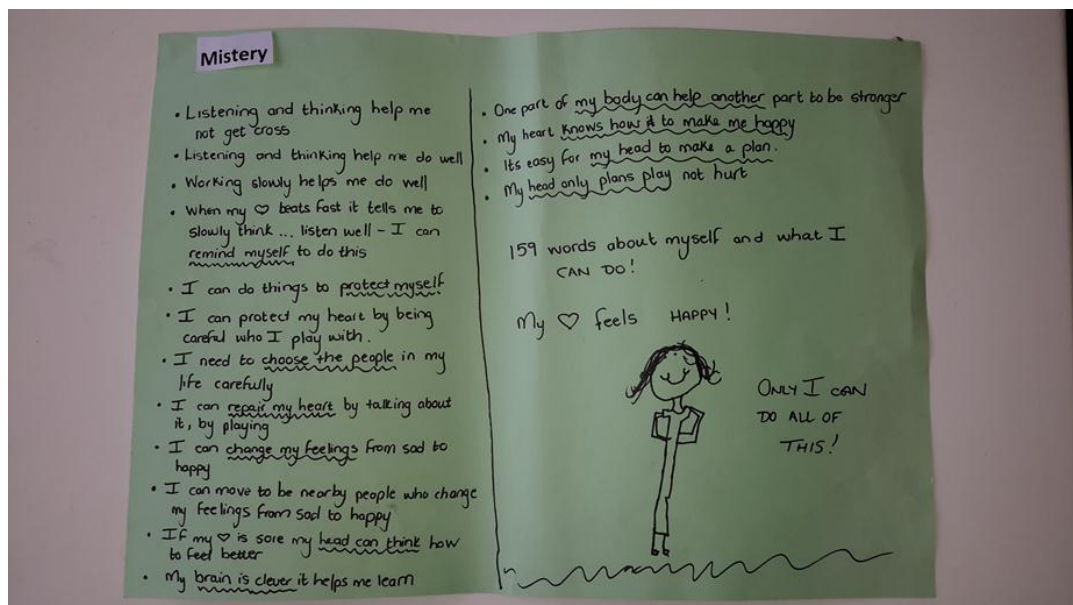 Mistery
• Listening and thinking help me
not get cross
• Listening and thinking help me do well
• Working slowly helps me do well
• When my ♡ beats fast it tells me to
slowly think ... listen well - I can
remind myself to do this
• I can do things to protect myself
• I can protect my heart by being
careful who I play with.
• I need to choose the people in my
life carefully
• I can repair my heart by talking about
it, by playing
• I can change my feelings from sad to
happy
• I can move to be nearby people who change
my feelings from sad to happy
• If my ♡ is sore my head can think how
to feel better
• My brain is clever it helps me learn
• One part of my body can help another part to be stronger
• My heart knows how to make me happy
• Its easy for my head to make a plan.
• My head only plans play not hurt
159 words about myself and what I
CAN DO!
My ♡ feels HAPPY!
ONLY I CAN
DO ALL OF
THIS!